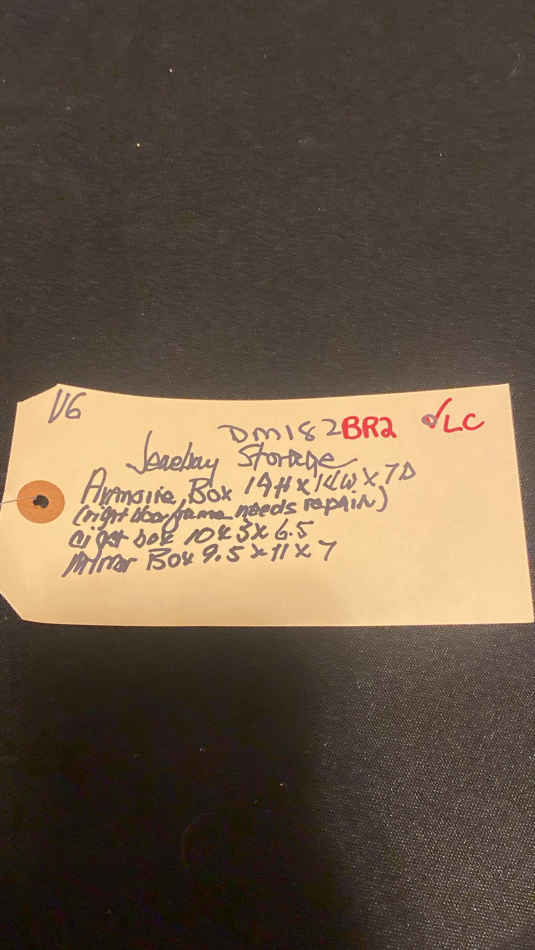 VG
DM182 BR2 ✓LC
Jewelry Storage
Armoire Box 19H x 14W x 7D
(right door frame needs repair)
box 10 x 3 x 6.5
Mirror Box 9.5 x 11 x 7